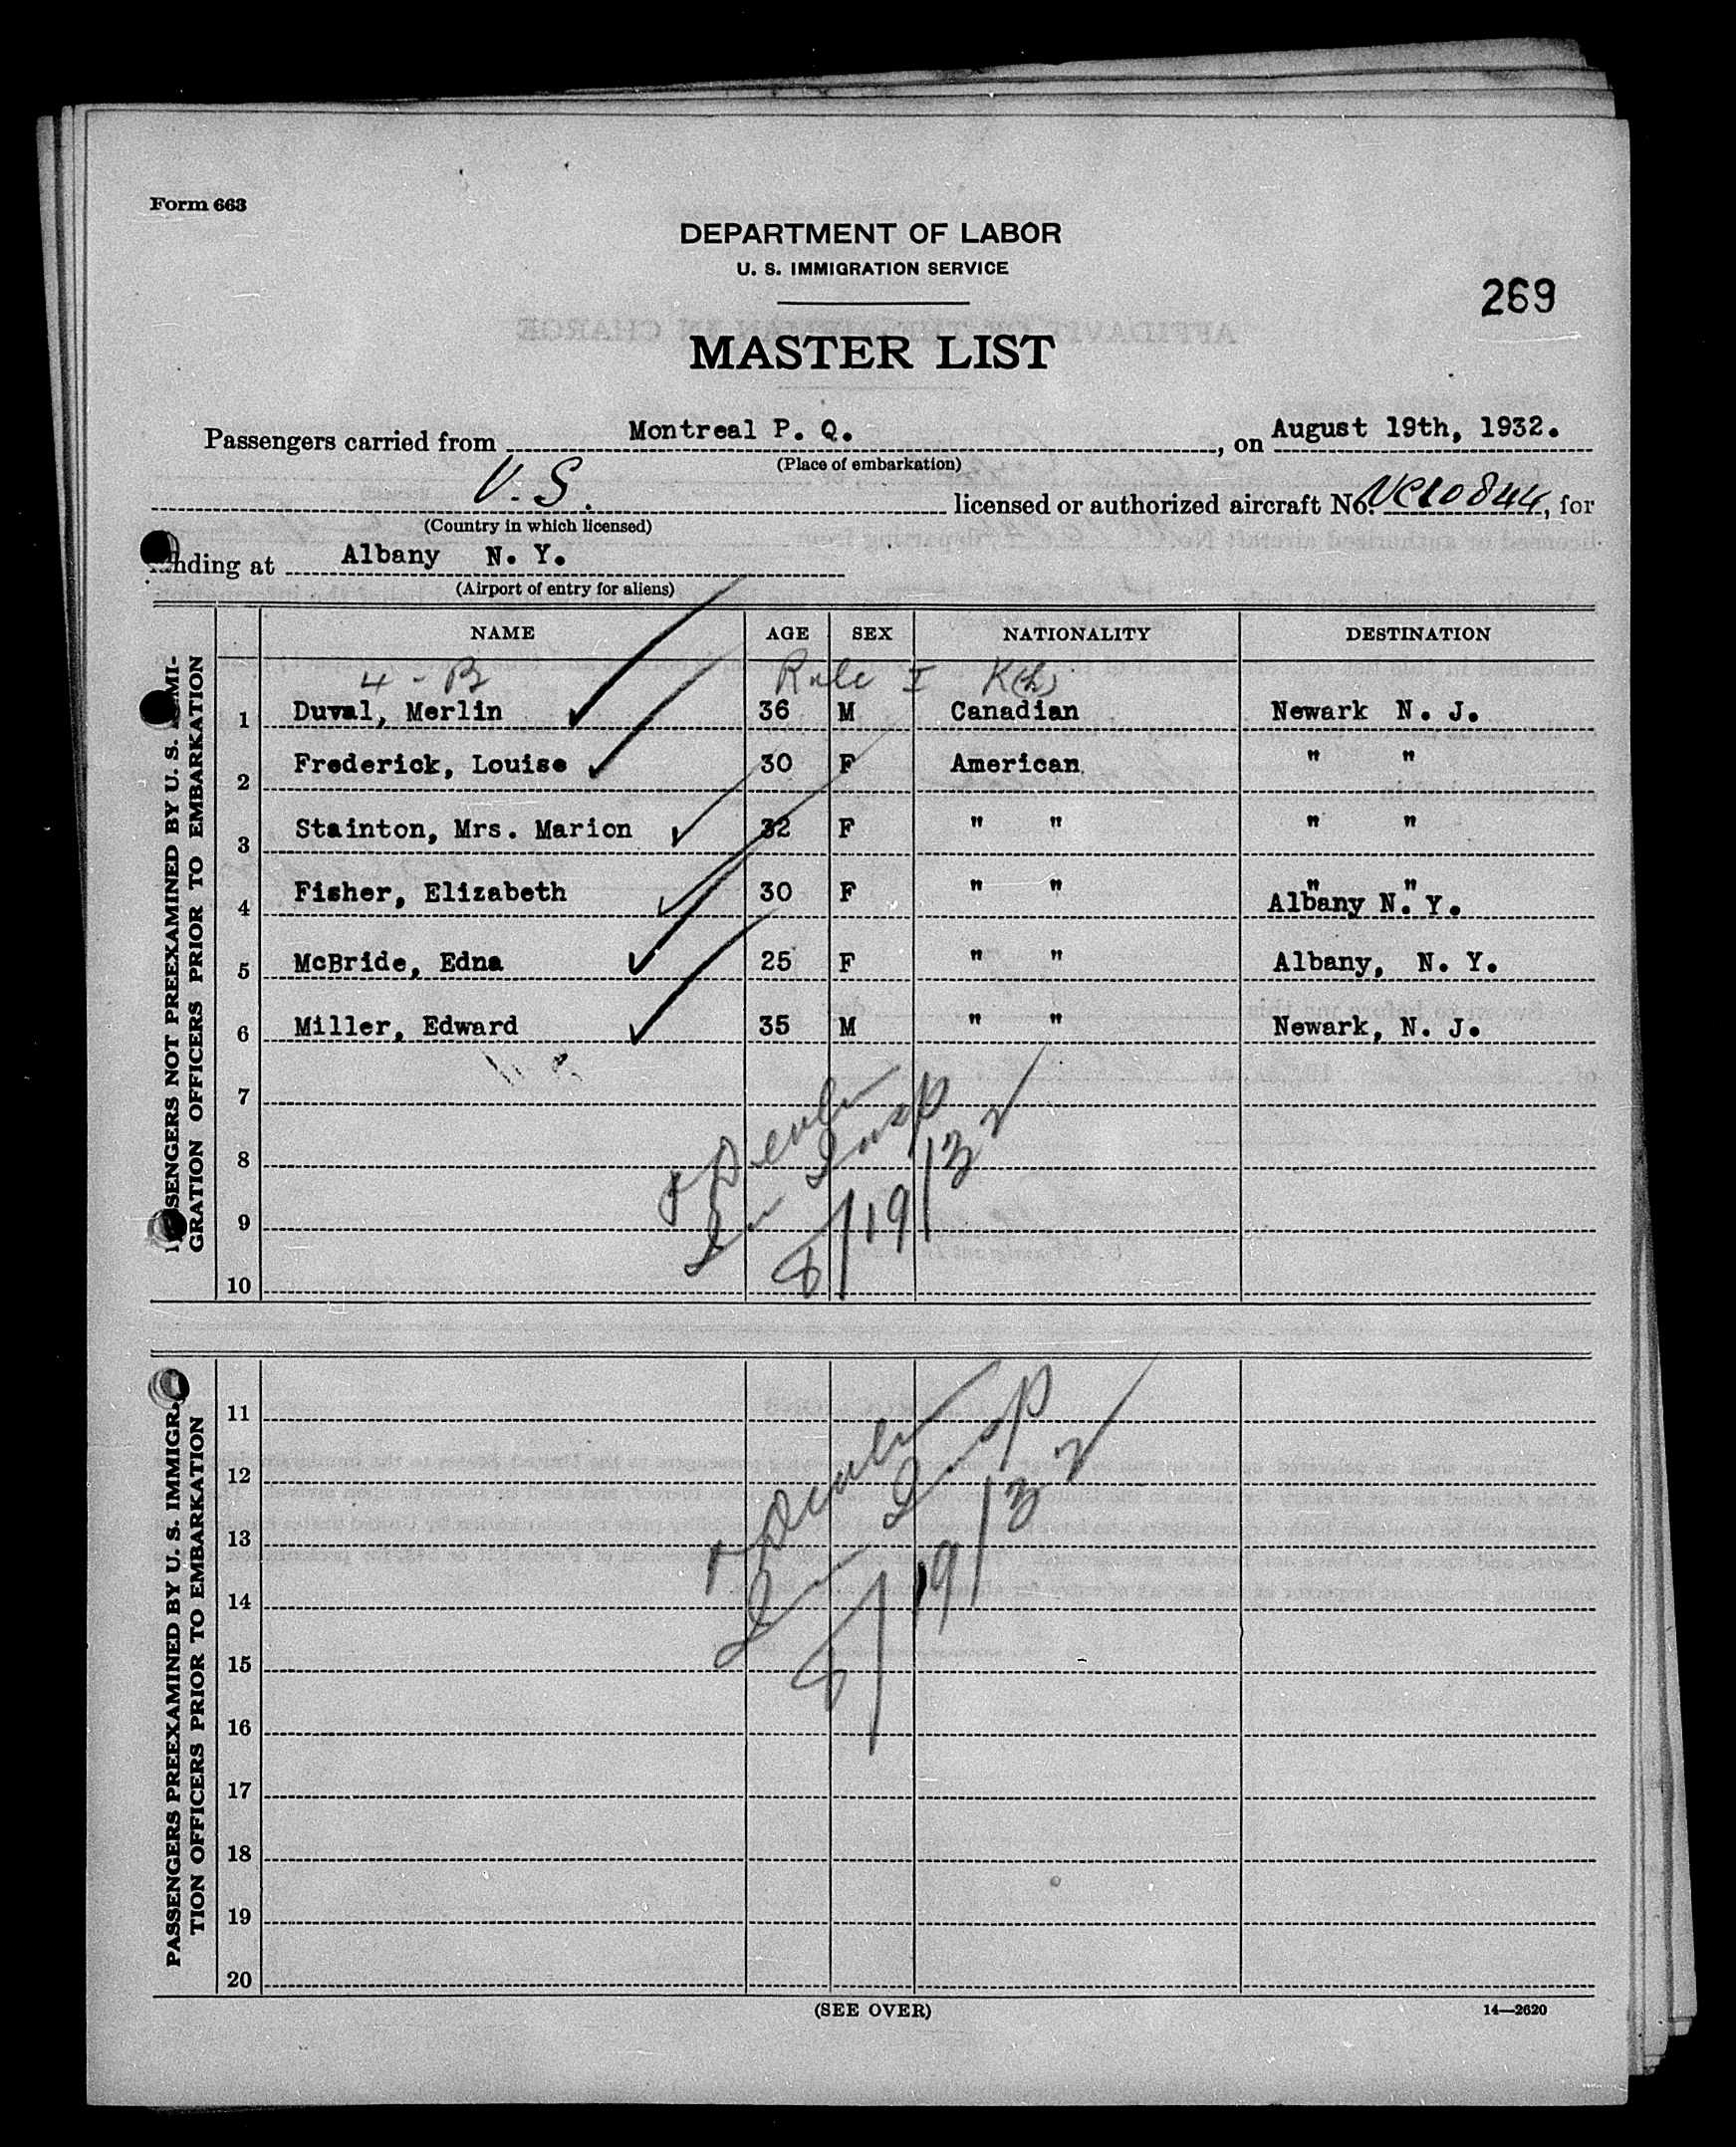 Form 663
DEPARTMENT OF LABOR
U. S. IMMIGRATION SERVICE
269
MASTER LIST
Passengers carried from Montreal P. Q. , on August 19th, 1932.
(Place of embarkation)
U. S. licensed or authorized aircraft No. NC10844, for
(Country in which licensed)
landing at Albany N. Y.
(Airport of entry for aliens)
NAME AGE SEX NATIONALITY DESTINATION
4 - B Rule I K(h)
1 Duval, Merlin 36 M Canadian Newark N. J.
2 Frederick, Louise 30 F American " "
3 Stainton, Mrs. Marion 32 F " " " "
4 Fisher, Elizabeth 30 F " " " "
Albany N. Y.
5 McBride, Edna 25 F " " Albany, N. Y.
6 Miller, Edward 35 M " " Newark, N. J.
7
8
9
10
Im Insp
8/19/32
PASSENGERS NOT PREEXAMINED BY U. S. IMMI-
GRATION OFFICERS PRIOR TO EMBARKATION
11
12
13
14
15
16
17
18
19
20
Im Insp
8/19/32
PASSENGERS PREEXAMINED BY U. S. IMMIGRA-
TION OFFICERS PRIOR TO EMBARKATION
(SEE OVER)
14—2620